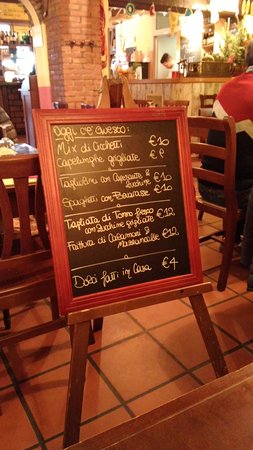 Oggi c'è questo:
Mix di Cicchetti €10
Capelunghe grigliate €9
o
Tagliolini con Capesante &
Zucchine €10
Spaghetti con Bevarasse €10
o
Tagliata di Tonno fresco €12
con Zucchine grigliate
Frittura di Calamari &
Mazzancolle €12
o
Dolci fatti in Casa €4